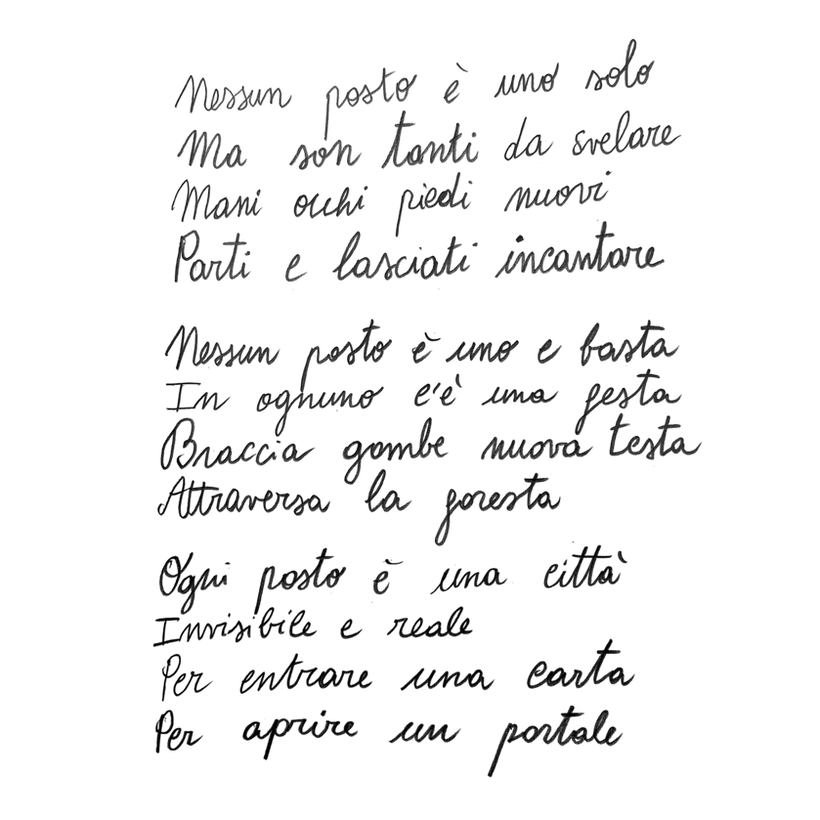 Nessun posto è uno solo
Ma son tanti da svelare
Mani occhi piedi nuovi
Parti e lasciati incantare
Nessun posto è uno e basta
In ognuno c'è una festa
Braccia gambe nuova testa
Attraversa la foresta
Ogni posto è una città
Invisibile e reale
Per entrare una carta
Per aprire un portale